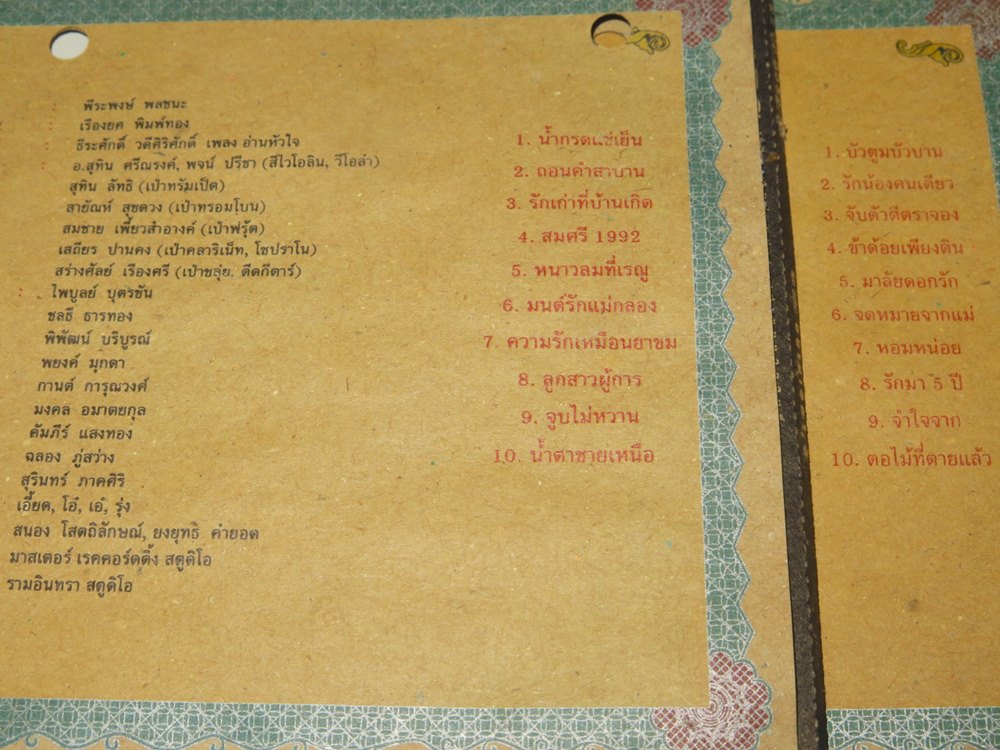 พีระพงษ์ พลชนะ
เรืองยศ พิมพ์ทอง
ธีระศักดิ์ วดีศิริศักดิ์ เพลง อ่านหัวใจ
อ.สุทิน ศรีณรงค์, พจน์ ปรีชา (สีไวโอลิน, วีโอล่า)
สุทิน ลัทธิ (เป่าทรัมเป็ต)
สายัณห์ สุขดวง (เป่าทรอมโบน)
สมชาย เพี้ยวสำอางค์ (เป่าฟรุ้ต)
เสถียร ปานคง (เป่าคลาริเน็ท, โซปราโน)
สร่างศัลย์ เรืองศรี (เป่าขลุ่ย. ดีดกีตาร์)
ไพบูลย์ บุตรขัน
ชลธี ธารทอง
พิพัฒน์ บริบูรณ์
พยงค์ มุกดา
กานต์ การุณวงศ์
มงคล อมาตยกุล
คัมภีร์ แสงทอง
ฉลอง ภู่สว่าง
สุรินทร์ ภาคศิริ
เอี้ยด, โอ๋, เอ๋, รุ่ง
สนอง โสตถิลักษณ์, ยงยุทธิ คำยอด
มาสเตอร์ เรคคอร์ดดิ้ง สตูดิโอ
รามอินทรา สตูดิโอ
1. น้ำกรดแช่เย็น
2. ถอนคำสาบาน
3. รักเก่าที่บ้านเกิด
4. สมศรี 1992
5. หนาวลมที่เรณู
6. มนต์รักแม่กลอง
7. ความรักเหมือนยาขม
8. ลูกสาวผู้การ
9. จูบไม่หวาน
10. น้ำตาชายเหนือ
1. บัวตูมบัวบาน
2. รักน้องคนเดียว
3. จับตัวตีตราจอง
4. ข้าด้อยเพียงดิน
5. มาลัยดอกรัก
6. จดหมายจากแม่
7. หอมหน่อย
8. รักมา 5 ปี
9. จำใจจาก
10. ตอไม้ที่ตายแล้ว